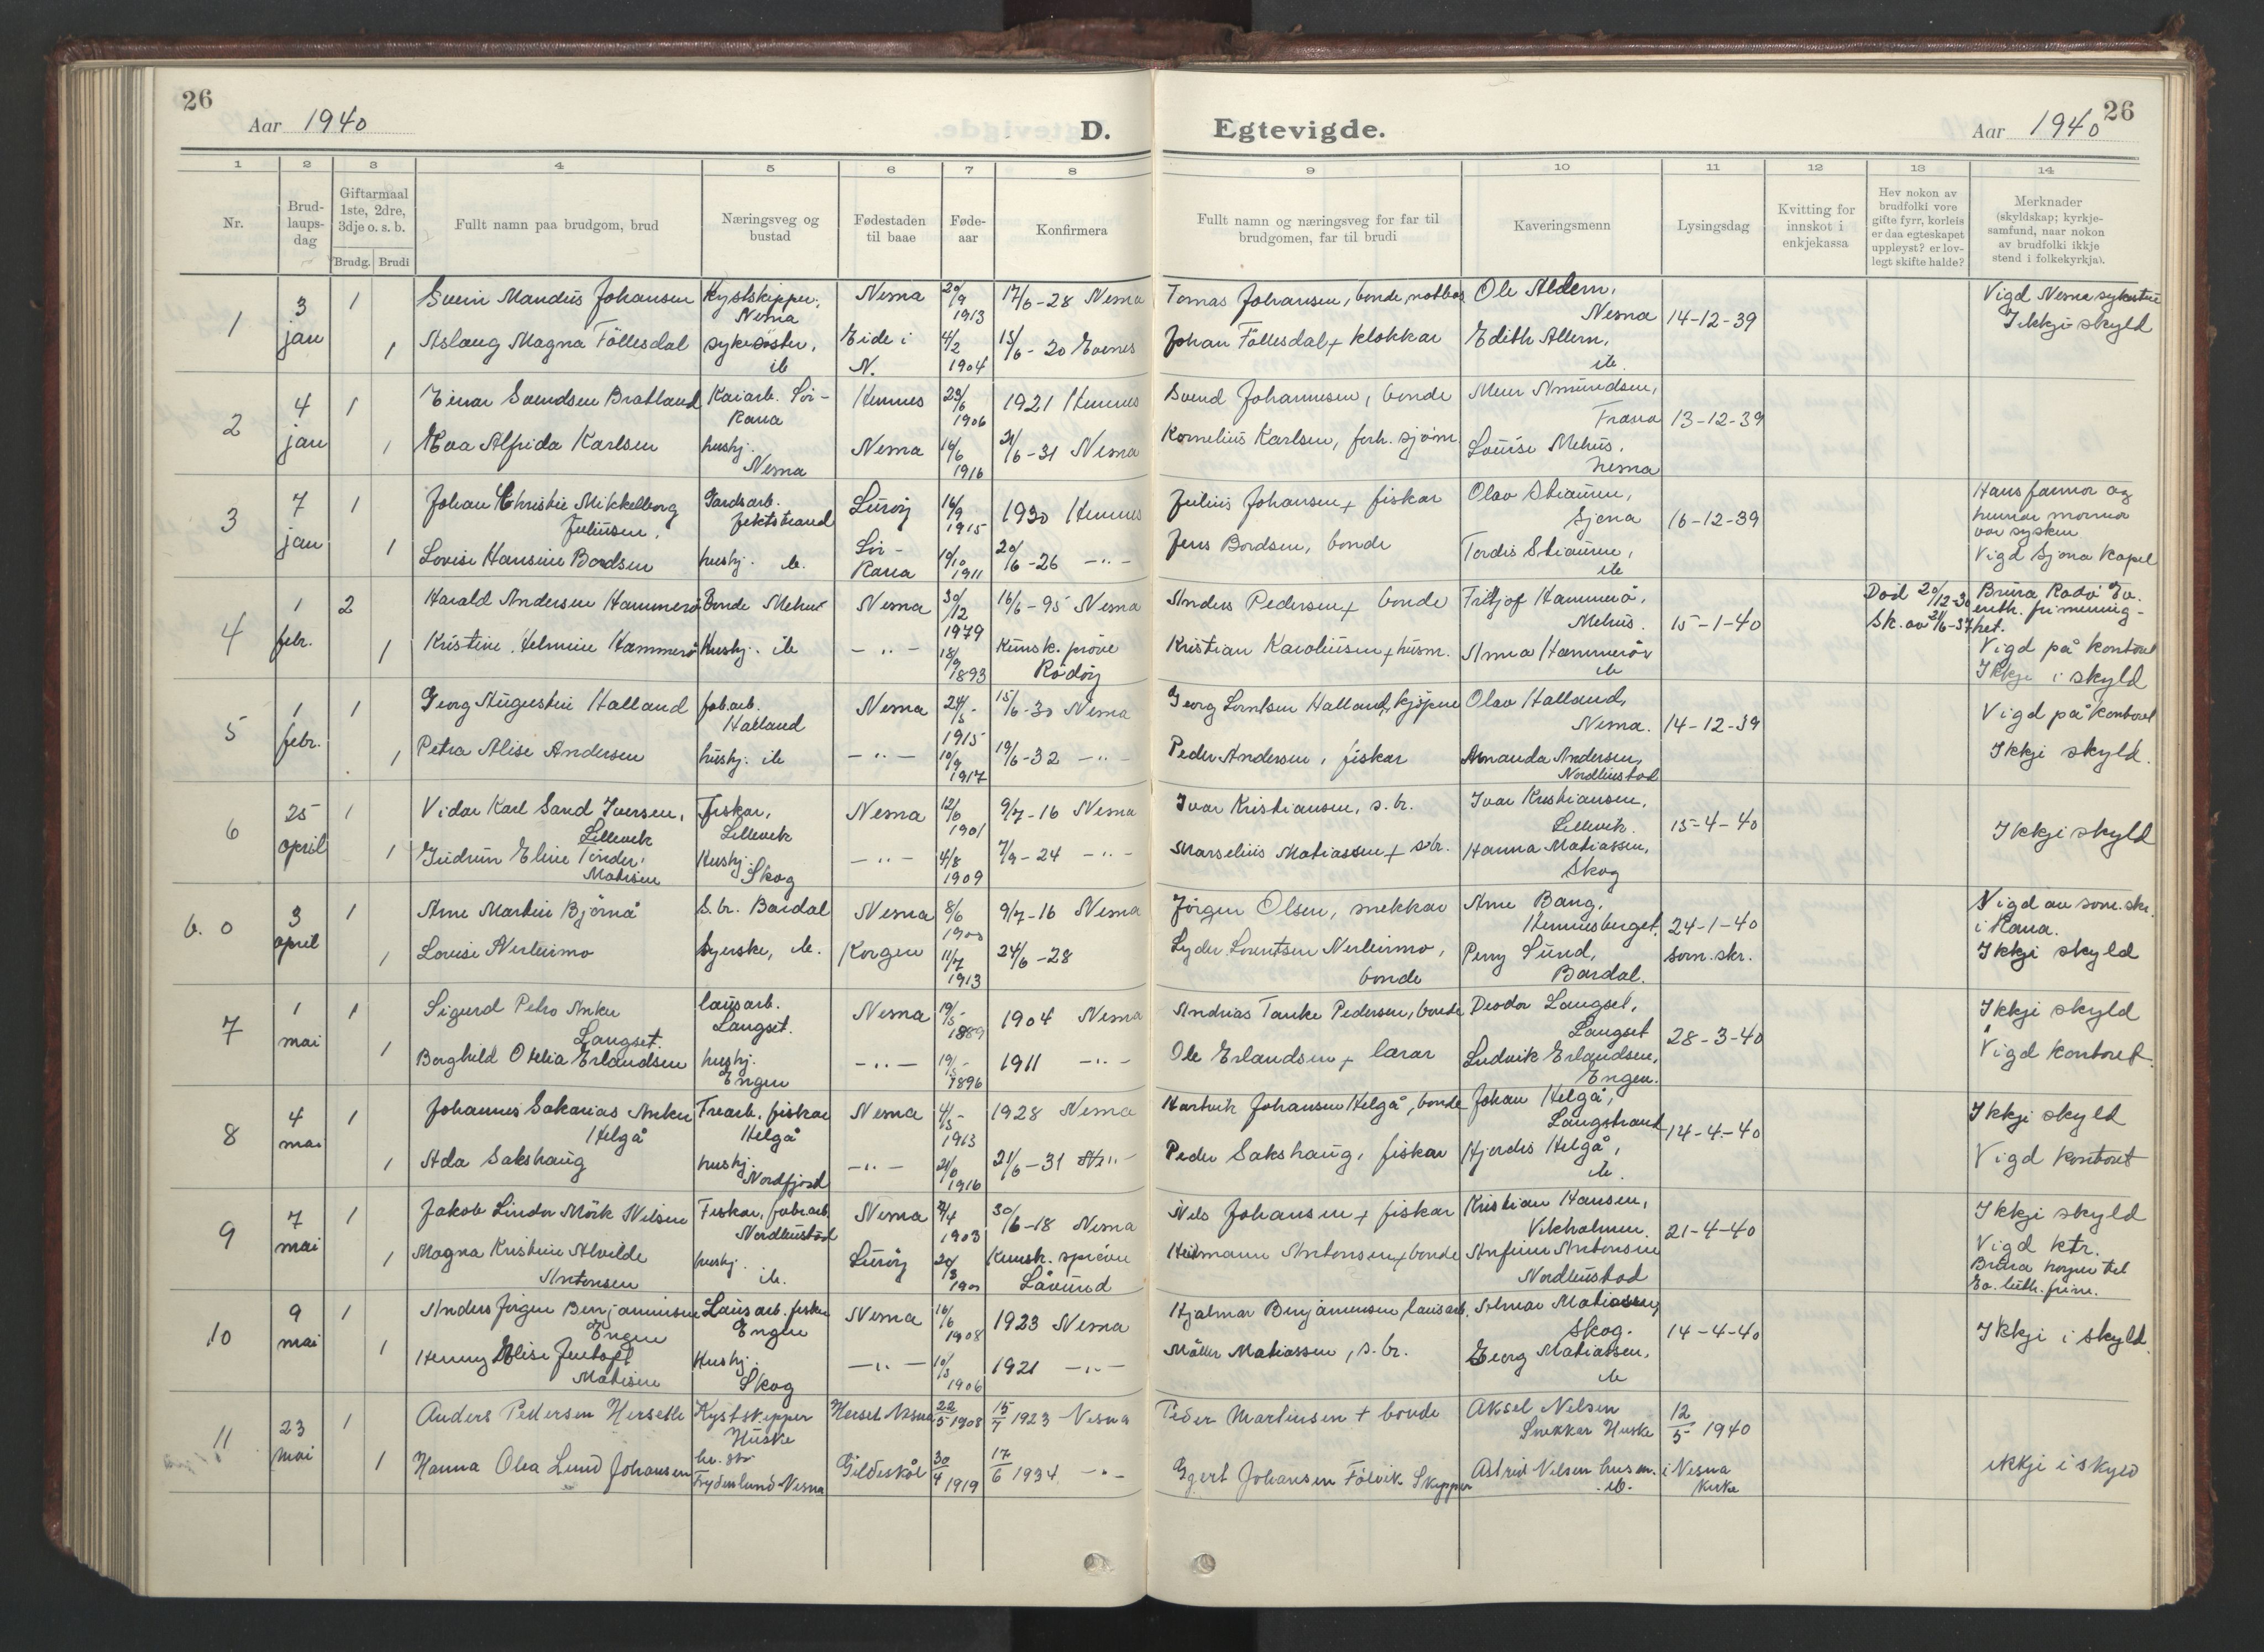 26
Aar 1940
D.
Egtevigde.
Aar 1940
26
1 2 3 4 5 6 7 8 9 10 11 12 13 14
Nr.
Brud-
laups-
dag
Giftarmaal
1ste, 2dre,
3dje o. s. b.
Brudg. Brudi
Fullt namn paa brudgom, brud
Næringsveg og
bustad
Fødestaden
til baae
Føde-
aar
Konfirmera
Fullt namn og næringsveg for far til
brudgomen, far til brudi
Kaveringsmenn
Lysingsdag
Kvitting for
innskot i
enkjekassa
Hev nokon av
brudfolki vore
gifte fyrr, korleis
er daa egteskapet
uppløyst? er lov-
legt skifte halde?
Merknader
(skyldskap; kyrkje-
samfund, naar nokon
av brudfolki ikkje
stend i folkekyrkja).
1 3 jan 1 Svein Mandius Johansen Kystskipper, Nesna Nesna 20/9 1913 17/6-28 Nesna Tomas Johansen, bonde, notbas Ole Aldern, Nesna 14-12-39 Vigd Nesna sykestue
Ikkji skyld
1 Aslaug Magna Föllesdal sykesöster, ib Eide i N. 4/2 1904 13/6-20 Evenes Johan Föllesdal + klokkar Edith Allern, ib.
2 4 jan 1 Einar Svendsen Bratland Kaiarb. Sör-Rana Hemnes 23/6 1906 1921 Hemnes Svend Johannesen, bonde Amundsen, 13-12-39
1 Eva Alfrida Karlsen hushj. Nesna Nesna 16/6 1916 21/6-31 Nesna Kornelius Karlsen, forh. sjöm. Louise Mehus, Nesna
3 7 jan 1 Johan Christie Mikkelborg Juliusen, Gardsarb. Jektstrand Luröy 16/9 1915 1930 Hemnes Julius Johansen + fiskar Olav Stiauren, Sjona 16-12-39 Hans farmor og
hennar mormor
var sysken
Vigd Sjona Kapel
1 Lovise Hansine Bordsen hushj. ib. Sör-Rana 10/10 1911 20/6-26 -"- Jens Bordsen, bonde Tordis Stiauren, ib
4 1 febr. 2 Harald Andersen Hammerö Bonde Mehus Nesna 30/12 1979 16/6-95 Nesna Anders Pedersen + bonde Fritjof Hammerö, Mehus. 15-1-40 Död 20/12-30 Sk. av 21/6-37 Brura Rodö Ev.
luth. frimenig-
het.
Vigd på kontoret
Ikkji i skyld
1 Kristine Helmine Hammerö Hushj. ib -"- 18/9 1893 Kunsk. pröve Rödöy Kristian Karoliussen + husm. Anna Hammerö, ib
5 1 febr. 1 Georg Augustin Halland fab.arb. Halland Nesna 24/5 1915 15/6-30 Nesna Georg Lorntsen Halland, kjöpm Olav Halland, Nesna. 14-12-39 Vigd på Kontoret
Ikkji skyld.
1 Petra Alise Andersen hushj. ib -"- 10/9 1917 19/6-32 -"- Peder Andersen, fiskar Amanda Andersen, Nordleistad
6 25 april 1 Vidar Karl Sand Iversen, Lillevik Fiskar, Lillevik Nesna 12/6 1901 9/7-16 Nesna Ivar Kristiansen, s. br. Ivar Kristiansen, Lillevik. 15-4-40 Ikkji skyld
1 Gudrun Eline Tönder Matisen Hushj. Skog -"- 4/8 1909 7/9-24 -"- Marselius Matiassen + s.br. Hanna Matiassen, Skog
6.0 3 april 1 Arne Martin Björnå S. br. Bardal Nesna 8/6 1900 9/7-16 Nesna Jörgen Olsen, snekkar Arne Bang, Hemnesberget. 24-1-40 Vigd av sorn.skr.
i Rana.
Ikkji skyld
1 Lovise Nerleirmo Syerske, ib. Korgen 11/7 1913 24/6-28 Lyder Lorentsen Nerleirmo, bonde Perry Sund, Bardal. sorn.skr.
7 1 mai 1 Sigurd Petro Anker Langset. lausarb. Langset. Nesna 19/5 1889 1904 Nesna Andrias Tanke Pedersen, bonde Deodor Langset, Langset 28-3-40 Ikkji skyld
Vigd kontoret
1 Borghild Otelia Erlandsen hushj. Engen -"- 19/5 1896 1911 -"- Ole Erlandsen + lærar Ludvik Erlandsen, Engen.
8 4 mai 1 Johannes Sakarias Anker Helgå Trearb, fiskar Helgå Nesna 4/5 1913 1928 Nesna Hartvik Johansen Helgå, bonde Johan Helgå, Langstrand 14-4-40 Ikkji skyld
Vigd kontoret
1 Ada Sakshaug hushj. Nordfjord -"- 21/6 1916 21/6-31 -"- Peder Sakshaug, fiskar Hjordis Helgå, ib.
9 7 mai 1 Jakob Lindor Mörk Nilsen Fiskar, fabr.arb. Nordleistad Nesna 1903 30/6-18 Nesna Nils Johansen + fiskar Kristian Hansen, Vikholmen. 21-4-40 Ikkji skyld
Vigd ktr.
Brura höyrer til
Ev. luth. frim.
1 Magna Kristine Alvilde Antonsen hushj. ib. Luröy 20/3 Kunsk. spröve Låvund Heitmann Antonsen + bonde Anfinn Antonsen Nordleistad
10 9 mai 1 Anders Jörgen Benjaminsen Engen Lausarb. fiskar Engen Nesna 16/6 1908 1923 Nesna Hjalmar Benjaminsen, lausarb. Almar Matiassen, Skog. 14-4-40 Ikkji i skyld.
1 Henny Elise Jentoft Matisen Hushj. Skog -"- 10/3 1906 1921 -"- Möller Matiassen, s. br. Georg Matiassen, ib
11 23 mai 1 Anders Pedersen Hersetle Kystskipper Huske Herset Nesna 22/5 1908 15/7 1923 Nesna Peder Martinsen + bonde Aksel Nelsen Snekkar Huske 12/5 1940 ikkji i skyld
1 Hanna Olea Lund Johansen Frydenlund Nesna Gildeskål 30/4 1919 17/6 1934 -"- Egert Johansen Fölvik Skipper Astrid Nelsen husm. ib. i Nesna kirke